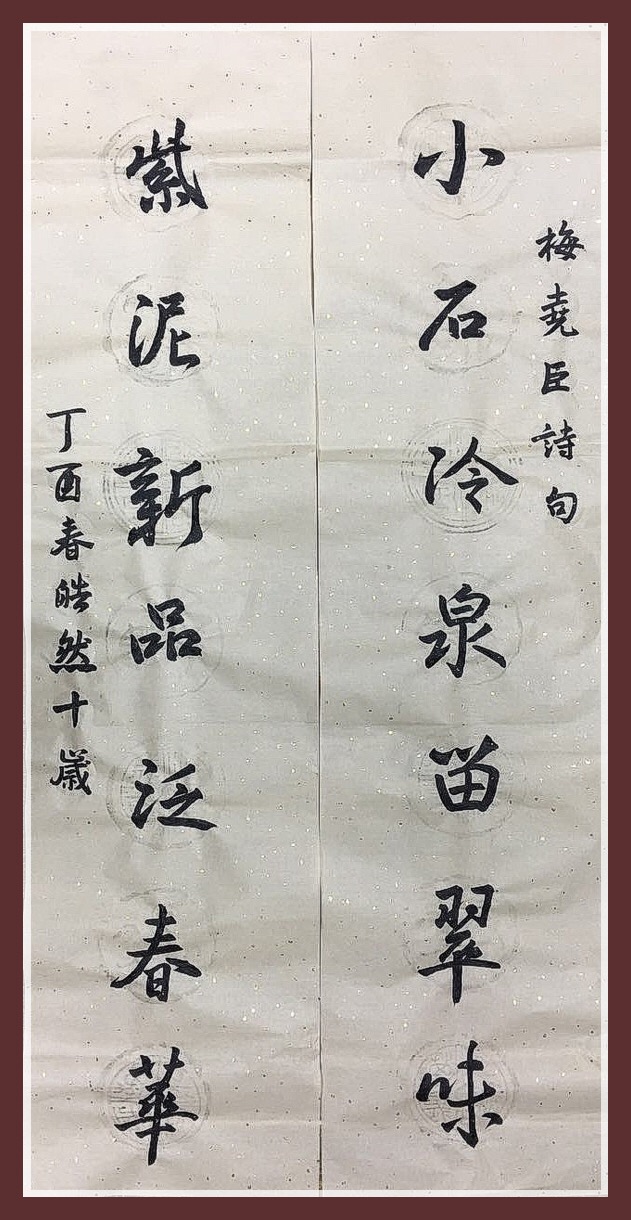 梅堯臣詩句
小石冷泉畱翠味
紫泥新品泛春華
丁酉春皓然十歲